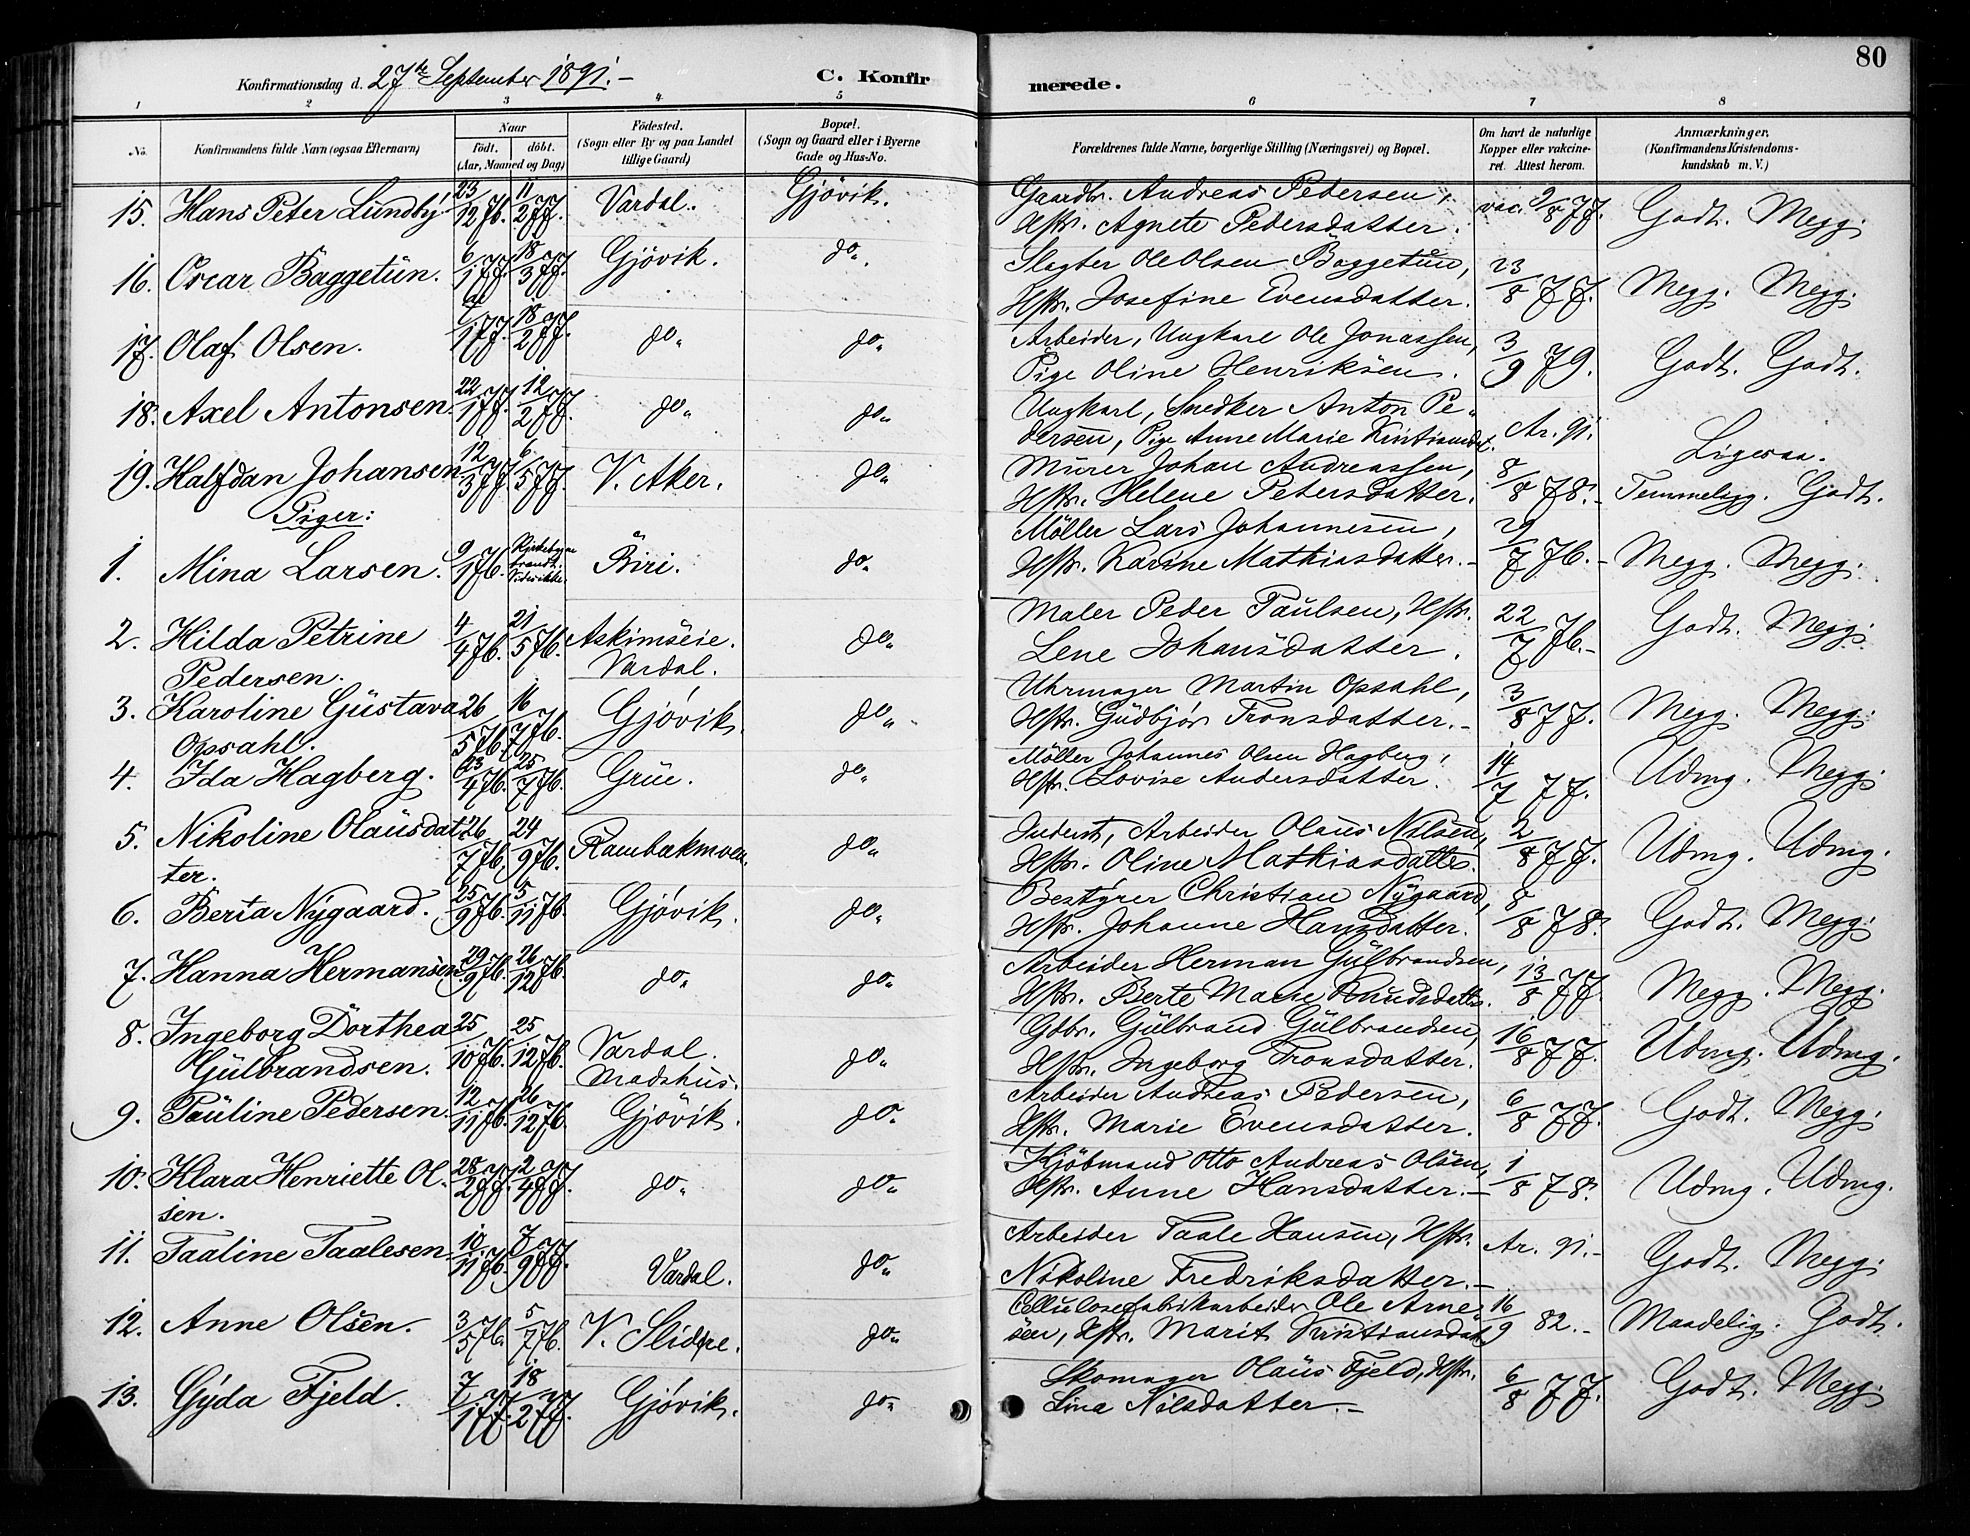 80
Konfirmationsdag d. 27de September 1891. – C. Konfir merede.
1 2 3 4 5 6 7 8
No. Konfirmandens fulde Navn (ogsaa Efternavn) Naar födt. döbt. (Aar, Maaned og Dag) Födested. (Sogn eller By og paa Landet tillige Gaard) Bopæl. (Sogn og Gaard eller i Byerne Gade og Hus-No. Forældrenes fulde Navne, borgerlige Stilling (Næringsvei) og Bopæl. Om havt de naturlige Kopper eller vaccineret. Attest herom. Anmærkninger, (Konfirmandens Kristendomskundskab m. V.)
15. Hans Peter Lundby 23/12 76. 11/2 77. Vardal. Gjövik. Gaardbr. Andreas Pedersen, Hstr. Agnete Pedersdatter. vac. 9/8 77. Godt. Megg.
16. Oscar Baggetun. 6/1 77. 18/3 77. Gjövik. do. Slagter Ole Olsen Baggetun, Hstr. Josefine Evensdatter. 23/8 77. Megg. Megg.
17. Olaf Olsen. 1 77. 18/2 77. do. do. Arbeider, Ungkarl Ole Jonassen, Pige Oline Henriksen. 3/9 79. Godt. Godt.
18. Axel Antonsen. 22/1 77. 12/2 77. do. do. Ungkarl, Snedker Anton Pedersen, Pige Anne Marie Kristiansdat. Ar. 91. Ligesaa.
19. Halfdan Johansen 12/3 77. 6/5 77. V. Aker. do. Murer Johan Andreassen, Hstr. Helene Petersdatter. 8/8 78. – Temmeligg. Godt.
Piger:
1. Mina Larsen. 9/1 76. Biri. do. Möller Lars Johannesen, Hstr. Karine Mathiasdatter. – 29/7 76. – Megg. Megg.
2. Hilda Petrine Pedersen. 4/4 76. 21/5 76. Askimseie. Vardal. do. Maler Peder Paulsen, Hstr. Lene Johansdatter. 22/7 76. – Godt. Megg.
3. Karoline Gustava Opsahl. 26/5 76. 16/7 76. Gjövik. do. Uhrmager Martin Opsahl, Hstr. Gudbjör Tronsdatter. – 3/8 77. Megg. Megg.
4. Ida Hagberg. 23/4 76. 25/7 76. Grue. do. Möller Johannes Olsen Hagberg, Hstr. Lovise Andersdatter. 14/7 77. Udmg. Megg.
5. Nikoline Olausdatter. 26/7 76. 24/9 76. Rambækmoen. do. Inderst, Arbeider Olaus Nilsen, Hstr. Oline Mathiasdatter. 2/8 77. Udmg. Udmg.
6. Berta Nygaard. 25/9 76. 5/11 76. Gjövik. do. Bestyrer Christian Nygaard, Hstr. Johanne Hansdatter. 8/8 78. Godt. Megg.
7. Hanna Hermansen. 29/9 76. 26/12 76. do. do. Arbeider Herman Gulbrandsen, Hstr. Berte Marie Knudsdatter. 13/8 77. Megg. Megg.
8. Ingeborg Dorthea Gulbrandsen. 25/10 76. 25/12 76. Vardal. Madshus. do. Gdbr. Gulbrand Gulbrandsen, Hstr. Ingeborg Tronsdatter. 16/8 77. Udmg. Udmg.
9. Pauline Pedersen. 12/11 76. 26/12 76. Gjövik. do. Arbeider Andreas Pedersen, Hstr. Marie Evensdatter. 6/8 77. Godt. Megg.
10. Klara Henriette Olsen. 28/2 77. 2/4 77. do. do. Kjöbmand Otto Andreas Olsen, Hstr. Anne Hansdatter. – 1/8 78. Udmg. Udmg.
11. Taaline Taalesen 10/11 76. 7/9 77. Vardal. do. Arbeider Taale Hansen, Hstr. Nikoline Fredriksdatter. – Ar. 91. – Godt. Megg.
12. Anne Olsen. 3/5 76. 5/7 76. V. Slidre. do. Cellulosefabrikarbeider Ole Arnesen, Hstr. Marit Kristiansdat. 16/9 82. – Maadelig. Godt.
13. Gyda Fjeld. 7/1 77. 18/2 77. Gjövik. do. Skomager Olaus Fjeld, Hstr. Lina Nilsdatter. – 6/8 77. Godt. Megg.